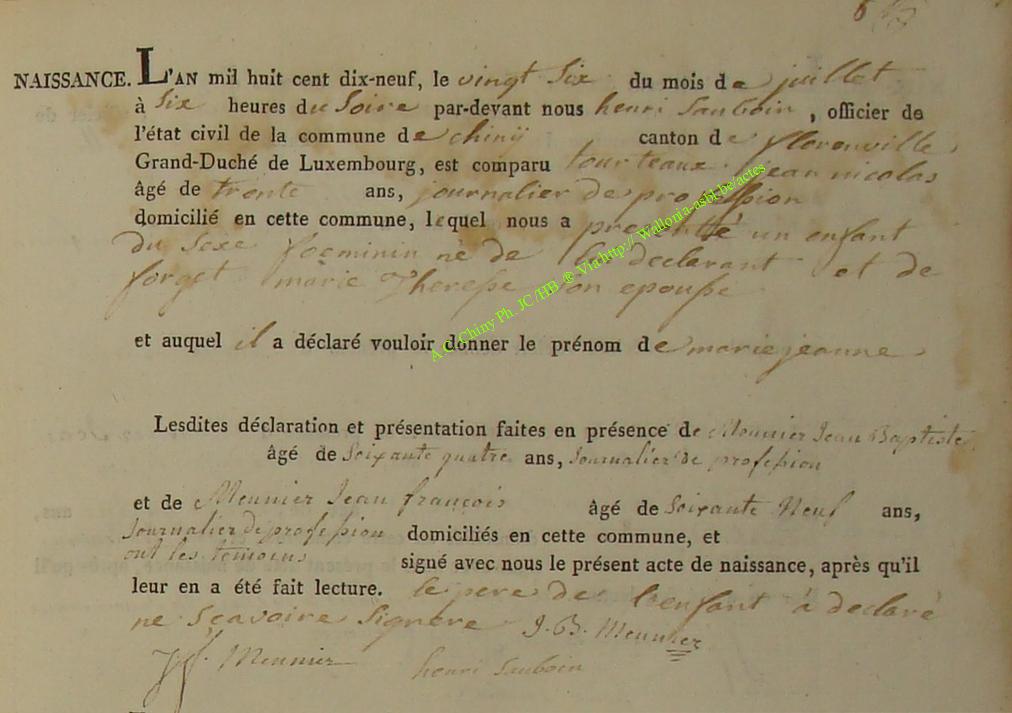 NAISSANCE. L'AN mil huit cent dix-neuf, le vingt Six du mois de juillet
à Six heures du Soire par-devant nous henri Sauboin, officier de
l'état civil de la commune de chinÿ canton de florenville,
Grand-Duché de Luxembourg, est comparu tourteaux jean nicolas
âgé de trente ans, journalier de profession
domicilié en cette commune, lequel nous a presenté un enfant
du Sexe foeminin né de le declarant et de
forget marie Therese Son epouse
et auquel il a déclaré vouloir donner le prénom de marie jeanne
Lesdites déclaration et présentation faites en présence de Meunier Jean Baptiste
âgé de Soixante quatre ans, Journalier de profession
et de Meunier Jean françois âgé de Soixante Neuf ans,
Journalier de profession domiciliés en cette commune, et
ont les temoins signé avec nous le présent acte de naissance, après qu'il
leur en a été fait lecture. le pere de l'enfant à declaré
ne Sçavoire Signere J. B. Meunier
J f. Meunier henri Sauboin
A.C. Chiny Ph. JC /HB ® Via http:// Wallonia-asbl.be/actes